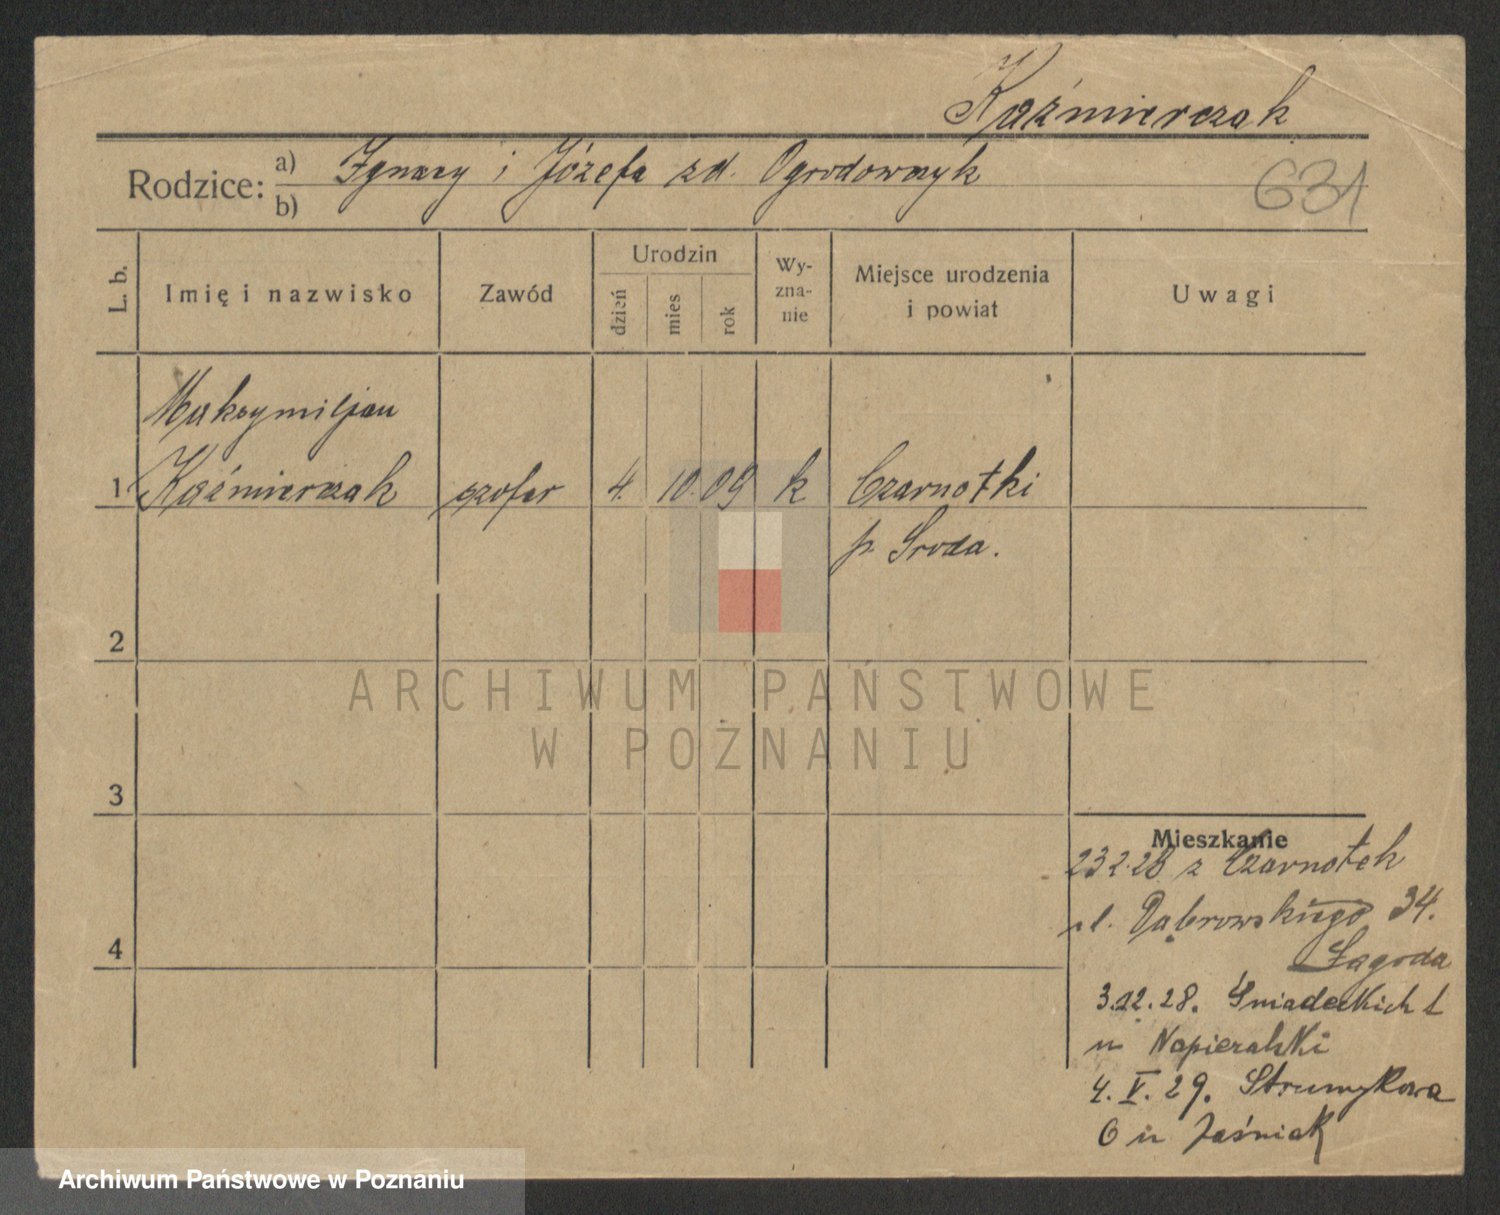 Kaźmierczak
Rodzice: a) Ignacy i Józefa zd. Ogrodowczyk
b)
631
L. b.
Imię i nazwisko
Zawód
Urodzin
dzień
mies
rok
Wy-
zna-
nie
Miejsce urodzenia
i powiat
Uwagi
Maksymiljan
1 Kaźmierczak szofer 4. 10. 09 k Czarnotki
p. Sroda.
2
ARCHIWUM PAŃSTWOWE
W POZNANIU
3
Mieszkanie
23.2.28 z Czarnotek
4
ul. Dąbrowskiego 34.
Łagoda
3.12.28. Śniadeckich 1
u Napieralski
4. V. 29. Strumykowa
6 u Jaśniak
Archiwum Państwowe w Poznaniu